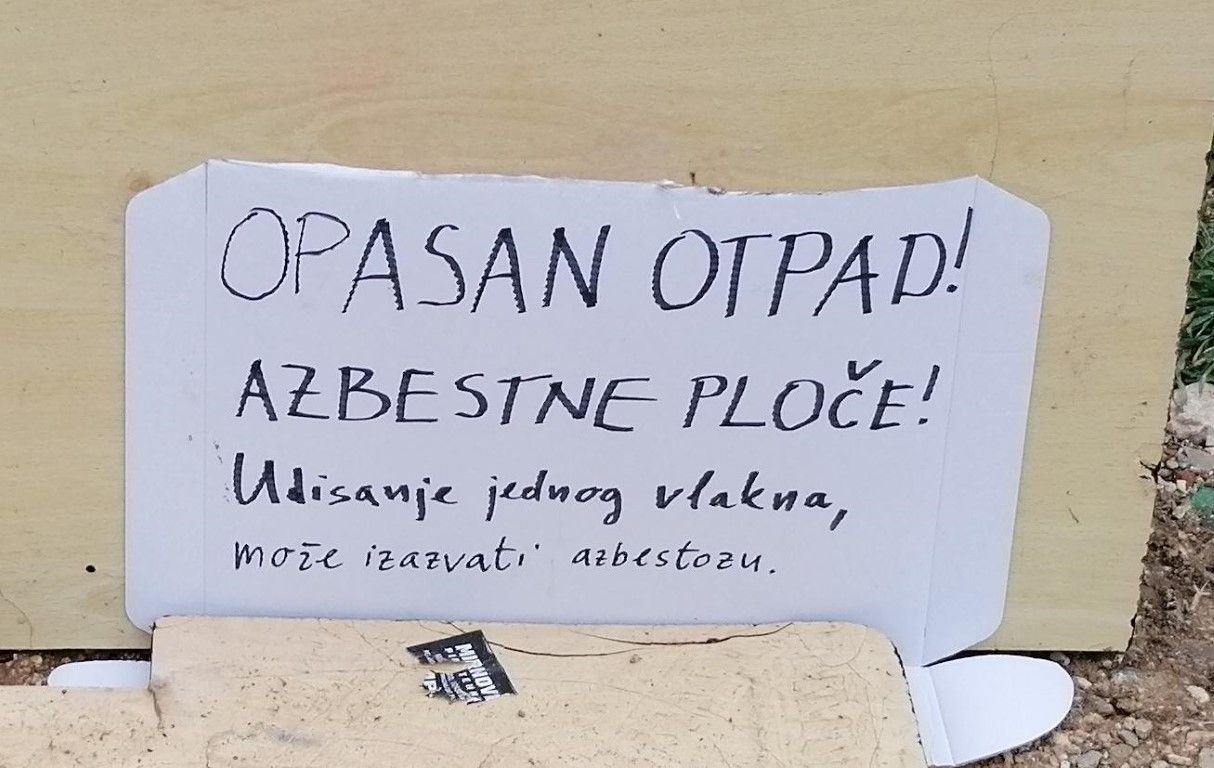 OPASAN OTPAD!
AZBESTNE PLOČE!
Udisanje jednog vlakna,
može izazvati azbestozu.